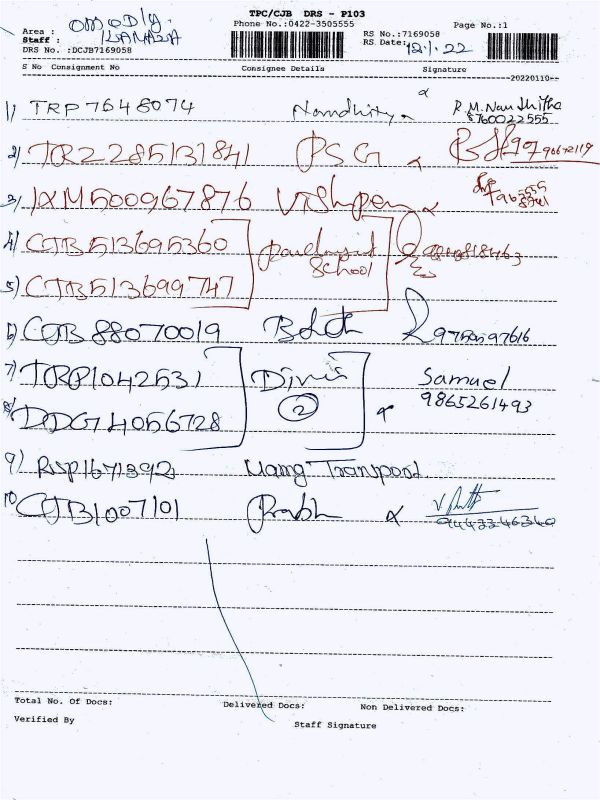 TPC/CJB DRS - P103
Phone No.:0422-3505555
Page No.:1
Area :
Staff :
DRS No. :DCJB7169058
RS No.:7169058
RS Date: 12.1.22
S No Consignment No Consignee Details Signature
20220110
1) TRP7648074 R.M.Nandhitha
8760022555
2) TRZ285131841 PSG
3) IXM500967876
4) CJB513695360
School
5) CJB513699747
6) CJB88070019
7) TRP1042531 Samuel
9865261493
8) DDG74056728 2
9) RSP1671392 Transport
10 CJB1007101 Prabh
9443346340
Total No. Of Docs: Delivered Docs: Non Delivered Docs:
Verified By Staff Signature